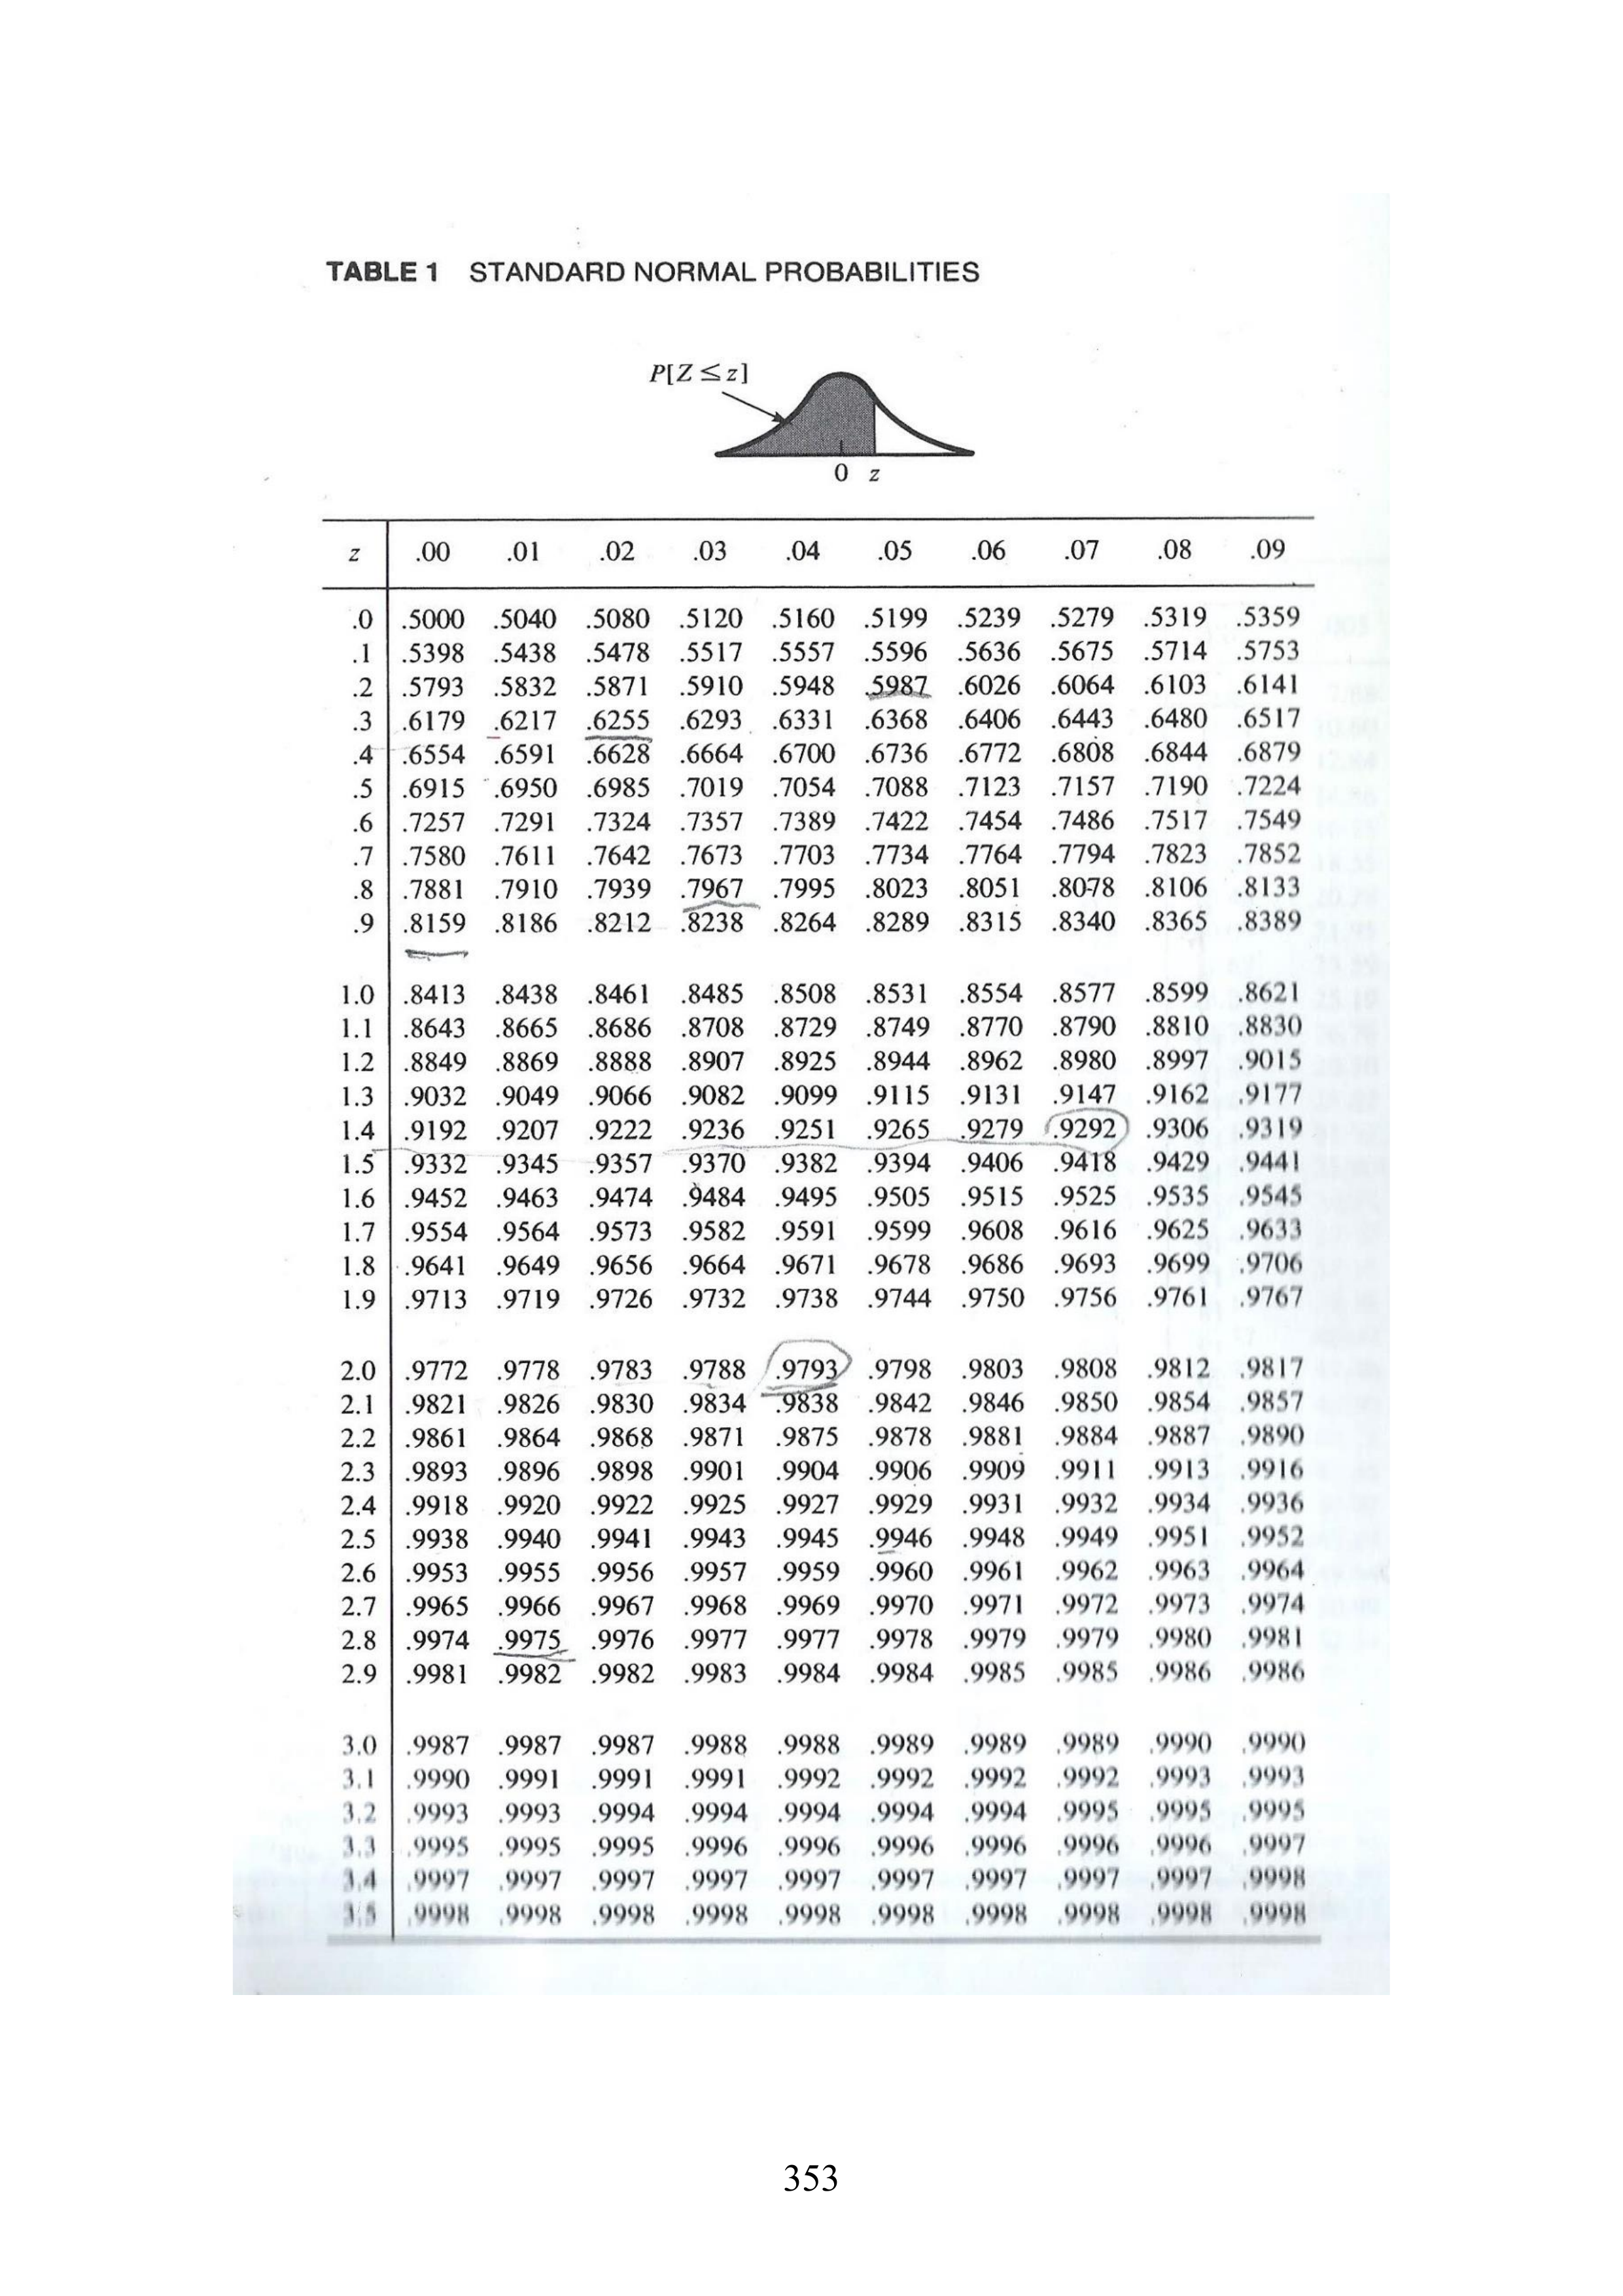 TABLE 1 STANDARD NORMAL PROBABILITIES
P[Z ≤ z]
0 z
z .00 .01 .02 .03 .04 .05 .06 .07 .08 .09
.0 .5000 .5040 .5080 .5120 .5160 .5199 .5239 .5279 .5319 .5359
.1 .5398 .5438 .5478 .5517 .5557 .5596 .5636 .5675 .5714 .5753
.2 .5793 .5832 .5871 .5910 .5948 .5987 .6026 .6064 .6103 .6141
.3 .6179 .6217 .6255 .6293 .6331 .6368 .6406 .6443 .6480 .6517
.4 .6554 .6591 .6628 .6664 .6700 .6736 .6772 .6808 .6844 .6879
.5 .6915 .6950 .6985 .7019 .7054 .7088 .7123 .7157 .7190 .7224
.6 .7257 .7291 .7324 .7357 .7389 .7422 .7454 .7486 .7517 .7549
.7 .7580 .7611 .7642 .7673 .7703 .7734 .7764 .7794 .7823 .7852
.8 .7881 .7910 .7939 .7967 .7995 .8023 .8051 .8078 .8106 .8133
.9 .8159 .8186 .8212 .8238 .8264 .8289 .8315 .8340 .8365 .8389
1.0 .8413 .8438 .8461 .8485 .8508 .8531 .8554 .8577 .8599 .8621
1.1 .8643 .8665 .8686 .8708 .8729 .8749 .8770 .8790 .8810 .8830
1.2 .8849 .8869 .8888 .8907 .8925 .8944 .8962 .8980 .8997 .9015
1.3 .9032 .9049 .9066 .9082 .9099 .9115 .9131 .9147 .9162 .9177
1.4 .9192 .9207 .9222 .9236 .9251 .9265 .9279 .9292 .9306 .9319
1.5 .9332 .9345 .9357 .9370 .9382 .9394 .9406 .9418 .9429 .9441
1.6 .9452 .9463 .9474 .9484 .9495 .9505 .9515 .9525 .9535 .9545
1.7 .9554 .9564 .9573 .9582 .9591 .9599 .9608 .9616 .9625 .9633
1.8 .9641 .9649 .9656 .9664 .9671 .9678 .9686 .9693 .9699 .9706
1.9 .9713 .9719 .9726 .9732 .9738 .9744 .9750 .9756 .9761 .9767
2.0 .9772 .9778 .9783 .9788 .9793 .9798 .9803 .9808 .9812 .9817
2.1 .9821 .9826 .9830 .9834 .9838 .9842 .9846 .9850 .9854 .9857
2.2 .9861 .9864 .9868 .9871 .9875 .9878 .9881 .9884 .9887 .9890
2.3 .9893 .9896 .9898 .9901 .9904 .9906 .9909 .9911 .9913 .9916
2.4 .9918 .9920 .9922 .9925 .9927 .9929 .9931 .9932 .9934 .9936
2.5 .9938 .9940 .9941 .9943 .9945 .9946 .9948 .9949 .9951 .9952
2.6 .9953 .9955 .9956 .9957 .9959 .9960 .9961 .9962 .9963 .9964
2.7 .9965 .9966 .9967 .9968 .9969 .9970 .9971 .9972 .9973 .9974
2.8 .9974 .9975 .9976 .9977 .9977 .9978 .9979 .9979 .9980 .9981
2.9 .9981 .9982 .9982 .9983 .9984 .9984 .9985 .9985 .9986 .9986
3.0 .9987 .9987 .9987 .9988 .9988 .9989 .9989 .9989 .9990 .9990
3.1 .9990 .9991 .9991 .9991 .9992 .9992 .9992 .9992 .9993 .9993
3.2 .9993 .9993 .9994 .9994 .9994 .9994 .9994 .9995 .9995 .9995
3.3 .9995 .9995 .9995 .9996 .9996 .9996 .9996 .9996 .9996 .9997
3.4 .9997 .9997 .9997 .9997 .9997 .9997 .9997 .9997 .9997 .9998
3.5 .9998 .9998 .9998 .9998 .9998 .9998 .9998 .9998 .9998 .9998
353